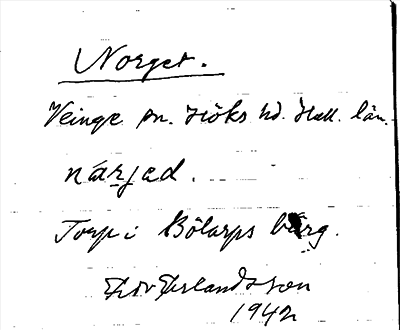 Norget.
Veinge sn. Höks hd. Hall. län.
närjəd.
Torp i Bölarps b rg.
Erlandsson
1942